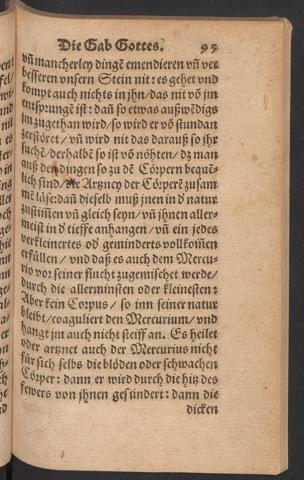 Die Gab Gottes. 95
vñ mancherley dingē emendieren vñ ver
besseren vnsern Stein nit: es gehet vnd
kompt auch nichts in jhn / das nit võ jm
entsprungē ist: dañ so etwas außwēdigs
jm zugethan wird / so wird er võ stundan
zerstöret / vñ wird nit das darauß so jhr
suchē / derhalbē so ist võ nöhten / dz man
auß den dingen so zu dē Cörpern bequē-
lich sind / die Artzney der Cörperē zusam
mē läse: dañ dieselb muß jnen in d' natur
zustim̃en vñ gleich seyn / vñ jhnen aller-
meist in d' tieffe anhangen / vñ ein jedes
verkleinertes od' geminderts vollkom̃en
erfüllen / vnd daß es auch dem Mercu-
rio vor seiner flucht zugemischet werde /
durch die allerminsten oder kleinesten:
Aber kein Corpus / so inn seiner natur
bleibt / coaguliert den Mercurium / vnd
hangt jm auch nicht steiff an. Es heilet
oder artznet auch der Mercurius nicht
für sich selbs die blöden oder schwachen
Cörper: dann er wird durch die hitz des
fewers von jhnen gesündert: dann die
dicken